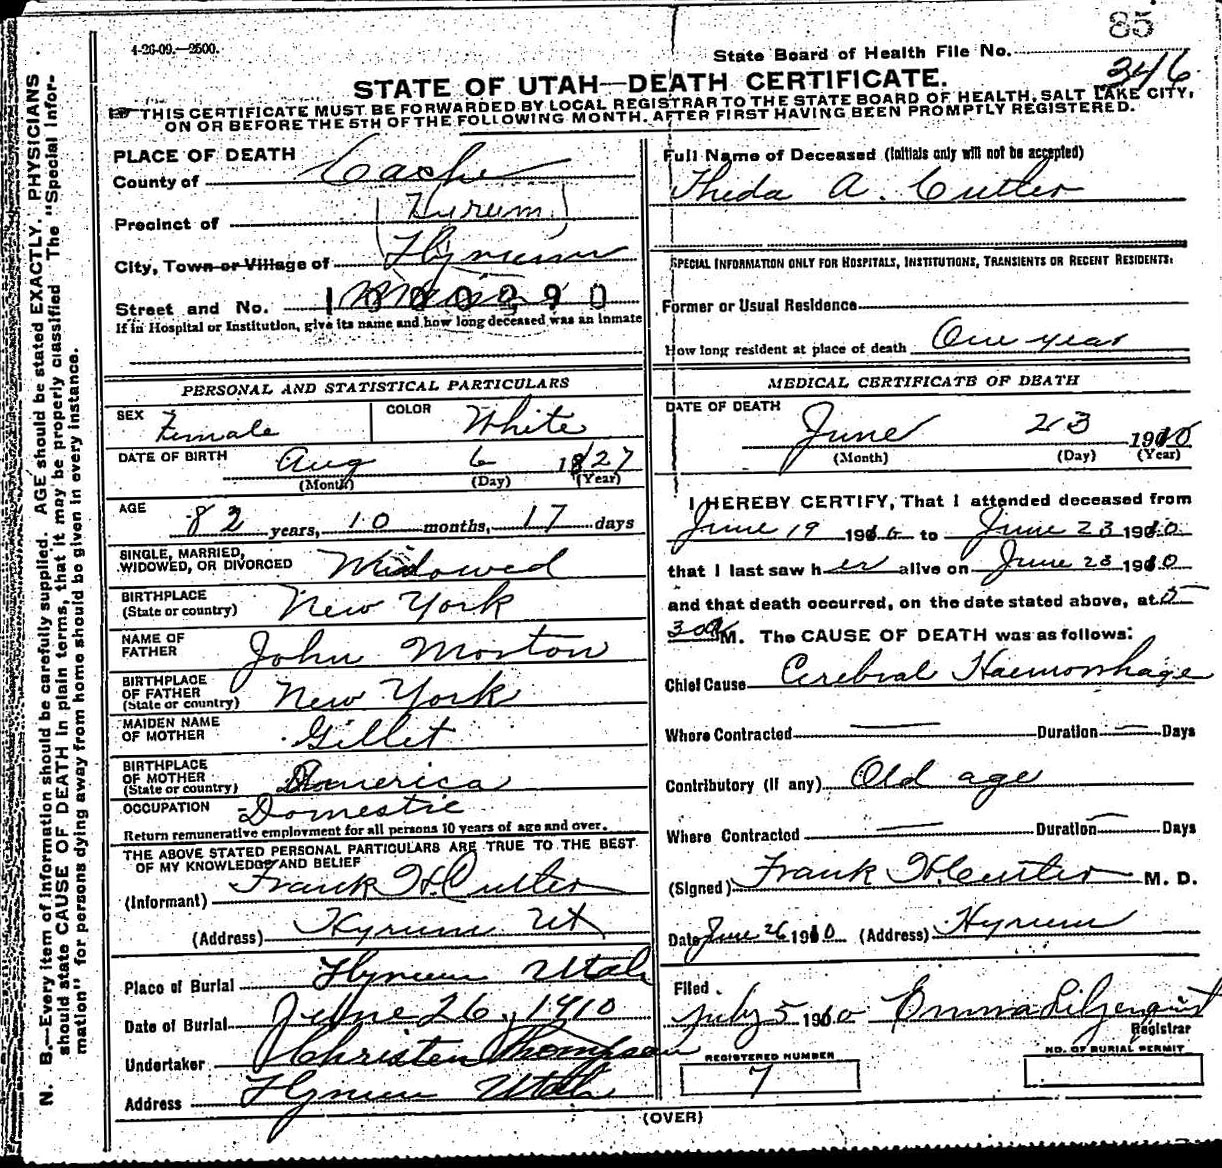 85
4-26-09.—2500.
State Board of Health File No.
346
STATE OF UTAH—DEATH CERTIFICATE.
THIS CERTIFICATE MUST BE FORWARDED BY LOCAL REGISTRAR TO THE STATE BOARD OF HEALTH, SALT LAKE CITY,
ON OR BEFORE THE 5TH OF THE FOLLOWING MONTH. AFTER FIRST HAVING BEEN PROMPTLY REGISTERED.
N. B.—Every item of information should be carefully supplied. AGE should be stated EXACTLY. PHYSICIANS
should state CAUSE OF DEATH in plain terms, that it may be properly classified The "Special Infor-
mation" for persons dying away from home should be given in every instance.
PLACE OF DEATH
County of Cache
Precinct of Hyrum
City, Town or Village of Hyrum
Street and No. 1000390
If in Hospital or Institution, give its name and how long deceased was an inmate
PERSONAL AND STATISTICAL PARTICULARS
SEX Female COLOR White
DATE OF BIRTH Aug 6 1827
(Month) (Day) (Year)
AGE 82 years, 10 months, 17 days
SINGLE, MARRIED,
WIDOWED, OR DIVORCED Widowed
BIRTHPLACE
(State or country) New York
NAME OF
FATHER John Morton
BIRTHPLACE
OF FATHER
(State or country) New York
MAIDEN NAME
OF MOTHER Gillet
BIRTHPLACE
OF MOTHER
(State or country) America
OCCUPATION Domestic
Return remunerative employment for all persons 10 years of age and over.
THE ABOVE STATED PERSONAL PARTICULARS ARE TRUE TO THE BEST
OF MY KNOWLEDGE AND BELIEF
(Informant) Frank H Cutler
(Address) Hyrum Ut
Place of Burial Hyrum Utah
Date of Burial June 26, 1910
Undertaker Christen Thompson
Address Hyrum Utah
Full Name of Deceased (Initials only will not be accepted)
Theda A. Cutler
SPECIAL INFORMATION ONLY FOR HOSPITALS, INSTITUTIONS, TRANSIENTS OR RECENT RESIDENTS:
Former or Usual Residence
How long resident at place of death One year
MEDICAL CERTIFICATE OF DEATH
DATE OF DEATH
June 23 1910
(Month) (Day) (Year)
I HEREBY CERTIFY, That I attended deceased from
June 19 1910 to June 23 1910
that I last saw her alive on June 23 1910
and that death occurred, on the date stated above, at 5
30 A M. The CAUSE OF DEATH was as follows:
Chief Cause Cerebral Haemorrhage
Where Contracted — Duration — Days
Contributory (if any) Old age
Where Contracted — Duration — Days
(Signed) Frank H Cutler M. D.
Date June 26 1910 (Address) Hyrum
Filed
July 5 1910 Emma Liljenquist
Registrar
REGISTERED NUMBER
7
NO. OF BURIAL PERMIT
(OVER)